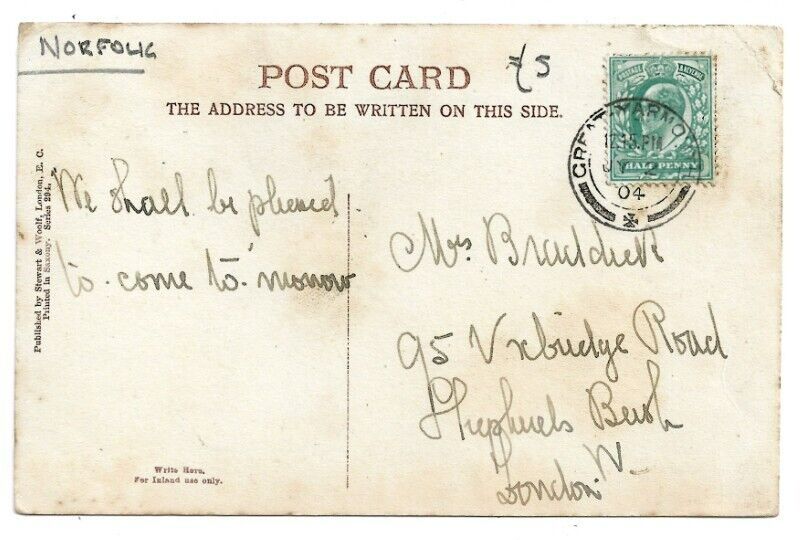 NORFOLK
£5
POST CARD
THE ADDRESS TO BE WRITTEN ON THIS SIDE.
POSTAGE & REVENUE
HALF PENNY
GREAT YARMOUTH
12.15.PM
JY 2
04
We shall be pleased
to come to morrow
Mrs Braddick
95 Uxbridge Road
Shepherds Bush
London W
Published by Stewart & Woolf, London, E. C.
Printed in Saxony. Series 294.
Write Here.
For Inland use only.